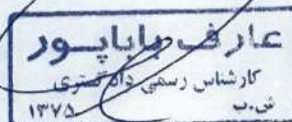 عارف باباپور
کارشناس رسمی دادگستری
ش.ب ۱۳۷۵